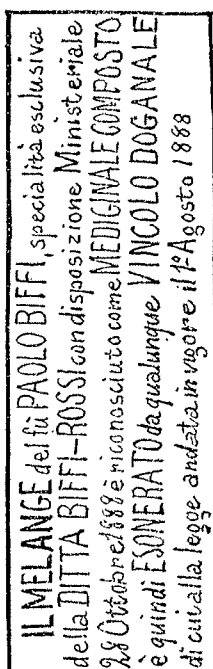 IL MELANGE del fù PAOLO BIFFI, specialità esclusiva
della DITTA BIFFI-ROSSI con disposizione Ministeriale
28 Ottobre 1888 è riconosciuto come MEDIGINALE COMPOSTO
è quindi ESONERATO da qualunque VINCOLO DOGANALE
di cui alla legge andata in vigore il 1° Agosto 1888